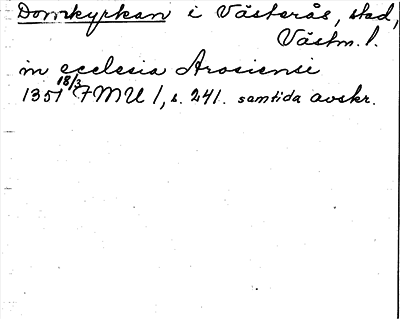 Domkyrkan i Västerås, stad,
Västm. l.
in ecclesia Arosiensi
1351 18/3 FMU 1, s. 241. samtida avskr.